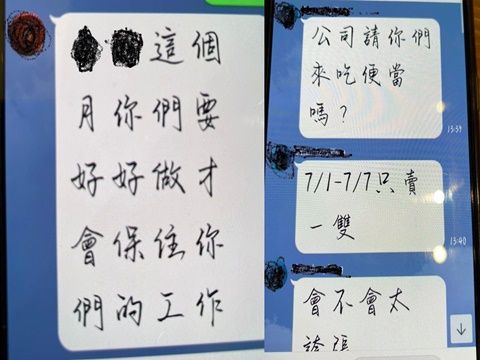 這個
月你們要
好好做才
會保住你
們的工作
公司請你們
來吃便當
嗎?
13:39
7/1-7/7只賣
一雙
13:40
會不會太
誇張